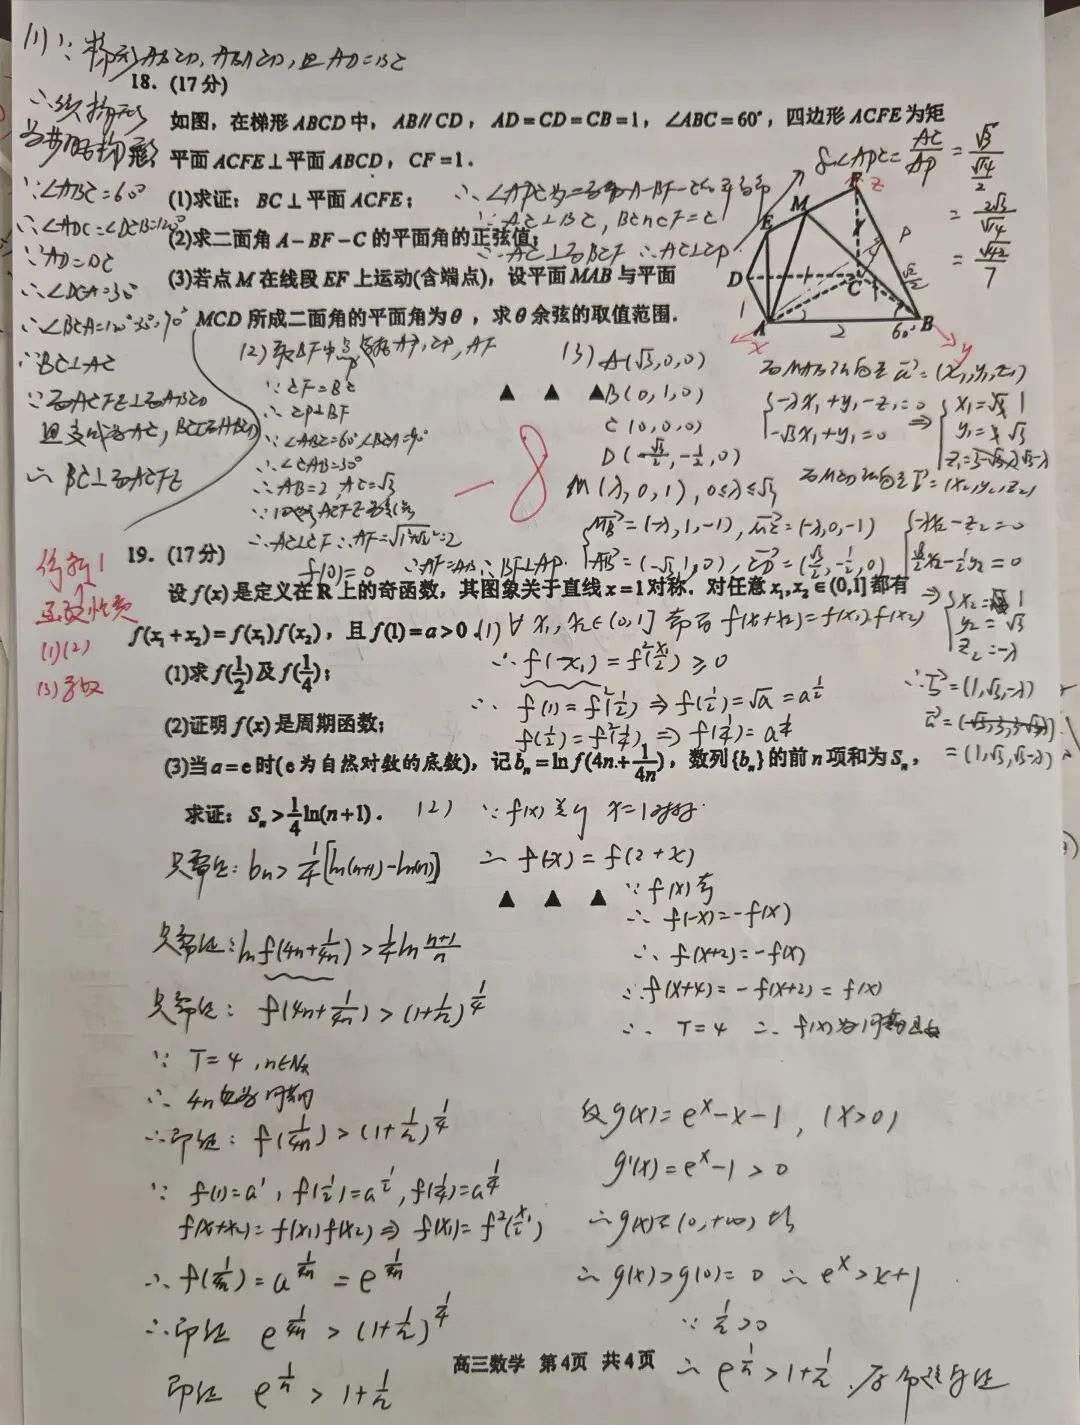 (1)∵梯形ABCD, AB∥CD,且AD=BC
18. (17分)
如图,在梯形ABCD中, AB∥CD, AD=CD=CB=1, ∠ABC=60°,四边形ACFE为矩
形,平面ACFE⊥平面ABCD, CF=1.
(1)求证: BC⊥平面ACFE;
(2)求二面角A-BF-C的平面角的正弦值;
(3)若点M在线段EF上运动(含端点),设平面MAB与平面
MCD所成二面角的平面角为θ,求θ余弦的取值范围.
∵∠ABC=60°
∴∠ADC=∠DCB=120°
∵AD=DC
∴∠DCA=30°
∴∠BCA=120°-30°=90°
∴BC⊥AC
∵面ACFE⊥面ABCD
∴BC⊥面ACFE
∵AC⊥BC, BC∩CF=C
∴AC⊥面BCF ∴AC⊥CP
=√3/(√14/2)
=2√3/√14
=√42/7
E M F z
D C P
1 A 2 60° B
x y
(2)取BF中点P,连接AP,CP,AF
∵CF=BC
∴CP⊥BF
∵∠ABC=60°∠BCA=90°
∴∠CAB=30°
∴AB=2, AC=√3
∴AF=AB∴BF⊥AP
▲ ▲ ▲
-8
(3) A(√3,0,0)
B(0,1,0)
C(0,0,0)
D(√3/2,-1/2,0)
M(λ,0,1),0≤λ≤√3
MB=(-λ,1,-1), MC=(-λ,0,-1)
AB=(-√3,1,0), CD=(√3/2,-1/2,0)
-λx₁+y₁-z₁=0
-√3x₁+y₁=0
-λx₂-z₂=0
∴b=(1,√3,-λ)
=(1,√3,√3-λ)
函数性质
(1)(2)
(3)导数
19. (17分)
f(0)=0
设f(x)是定义在R上的奇函数,其图象关于直线x=1对称.对任意x₁,x₂∈(0,1]都有
f(x₁+x₂)=f(x₁)f(x₂),且f(1)=a>0.
(1)求f(1/2)及f(1/4);
(2)证明f(x)是周期函数;
(3)当a=e时(e为自然对数的底数),记bₙ=ln f(4n+1/4n),数列{bₙ}的前n项和为Sₙ,
求证: Sₙ>1/4 ln(n+1).
(1)∀x₁,x₂∈(0,1]都有f(x₁+x₂)=f(x₁)f(x₂)
∴f(x₁)=f²(x₁/2)≥0
∴f(1)=f²(1/2)⇒f(1/2)=√a=a^(1/2)
f(1/2)=f²(1/4)⇒f(1/4)=a^(1/4)
(2)∵f(x)关于x=1对称
∴f(-x)=f(2+x)
∵f(x)奇
▲ ▲ ▲
∴f(-x)=-f(x)
∴f(x+2)=-f(x)
∴f(x+4)=-f(x+2)=f(x)
∴T=4 ∴f(x)为周期函数
只需证:bₙ>1/4[ln(n+1)-ln(n)]
只需证:ln f(4n+1/4n)>1/4 ln (n+1)/n
只需证:f(4n+1/4n)>(1+1/n)^(1/4)
∵T=4,n∈N*
∴4n也为周期
∴即证:f(1/4n)>(1+1/n)^(1/4)
∵f(1)=a¹,f(1/2)=a^(1/2),f(1/4)=a^(1/4)
f(x₁+x₂)=f(x₁)f(x₂)⇒f(x₁)=f²(x₁/2)
∴f(1/4n)=a^(1/4n)=e^(1/4n)
∴即证 e^(1/4n)>(1+1/n)^(1/4)
即证 e^(1/n)>1+1/n
设g(x)=e^x-x-1,(x>0)
g'(x)=e^x-1>0
∴g(x)在(0,+∞)↑
∴g(x)>g(0)=0 ∴e^x>x+1
∵1/n>0
∴e^(1/n)>1+1/n,原命题得证
高三数学 第4页 共4页